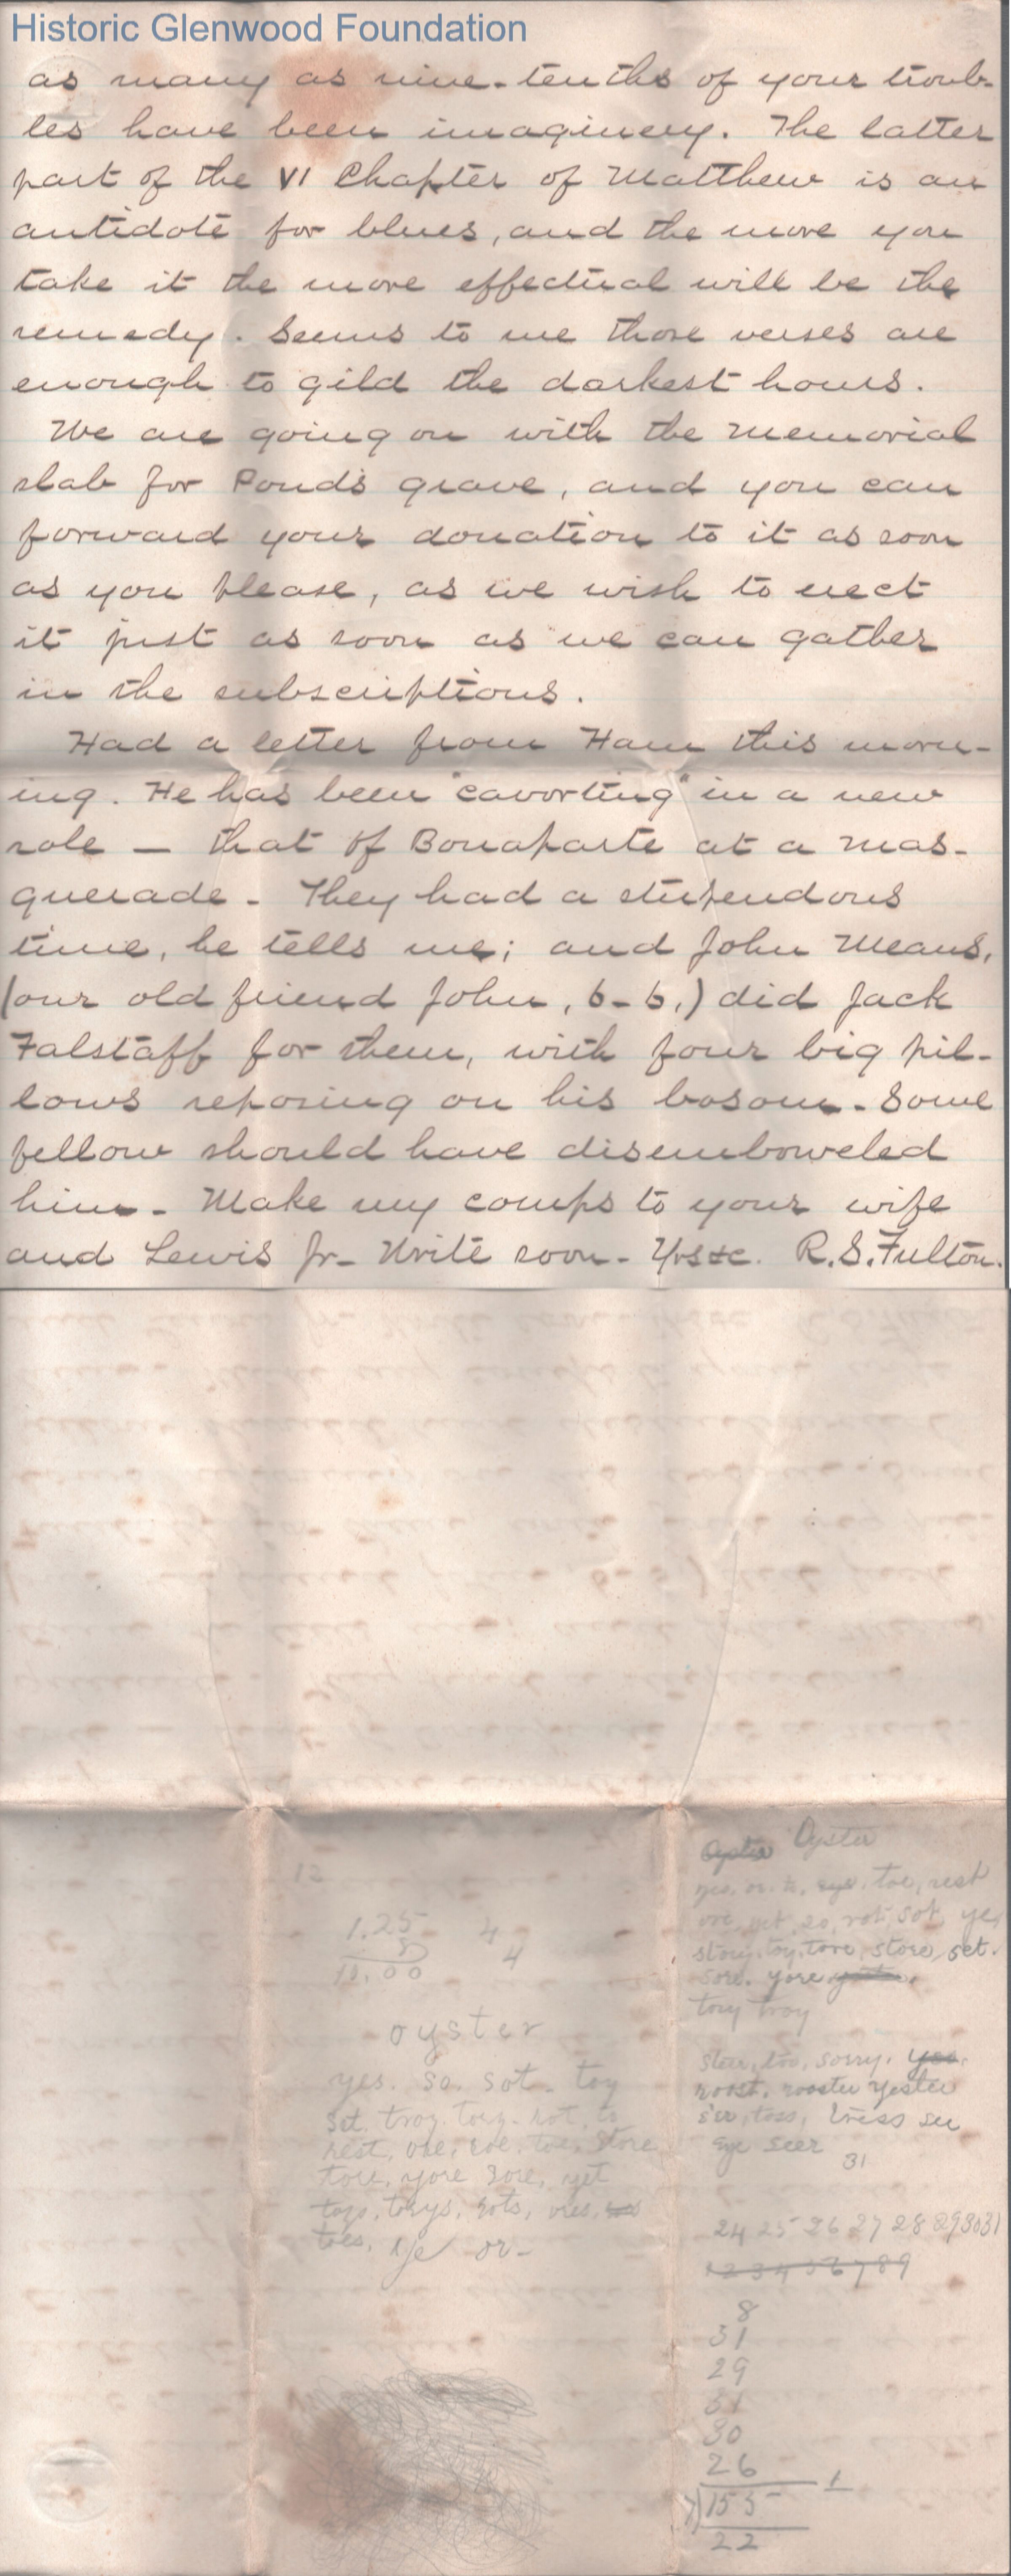 Historic Glenwood Foundation
as many as nine-tenths of your troub-
les have been imaginery. The latter
part of the VI Chapter of Matthew is an
antidote for blues, and the more you
take it the more effectual will be the
remedy. Seems to me those verses are
enough to gild the darkest hours.
We are going on with the memorial
slab for Pond's grave, and you can
forward your donation to it as soon
as you please, as we wish to erect
it just as soon as we can gather
in the subscriptions.
Had a letter from Ham this morn-
ing. He has been "cavorting" in a new
role — that of Bonaparte at a mas-
querade - They had a stupendous
time, he tells me; and John Means,
(our old friend John, 6-6,) did Jack
Falstaff for them, with four big pil-
lows reposing on his bosom - Some
fellow should have disemboweled
him - Make my comps to your wife
and Lewis Jr - Write soon - Yrs &c. R.S. Fulton.
12
1.25 4
8 4
10.00
oyster
yes. so. sot. toy
set. troy. tory. rot. to
rest, ore, roe, toe, store
tore, yore sore, yet
toys, torys, rots, ores,
toes, eye or -
Oyster Oyster
yes. or. to. eye. toe, rest
ore, yet, so, rot, sot, ye,
story, toy, tore, store, set.
sore. yore
tory troy
steer, too, sorry. yes.
roost. rooster yester
toss, tress see
eye seer 31
24 25 26 27 28 29 30 31
1 2 3 4 5 6 7 8 9
8
31
29
31
30
26
7)155 1
22